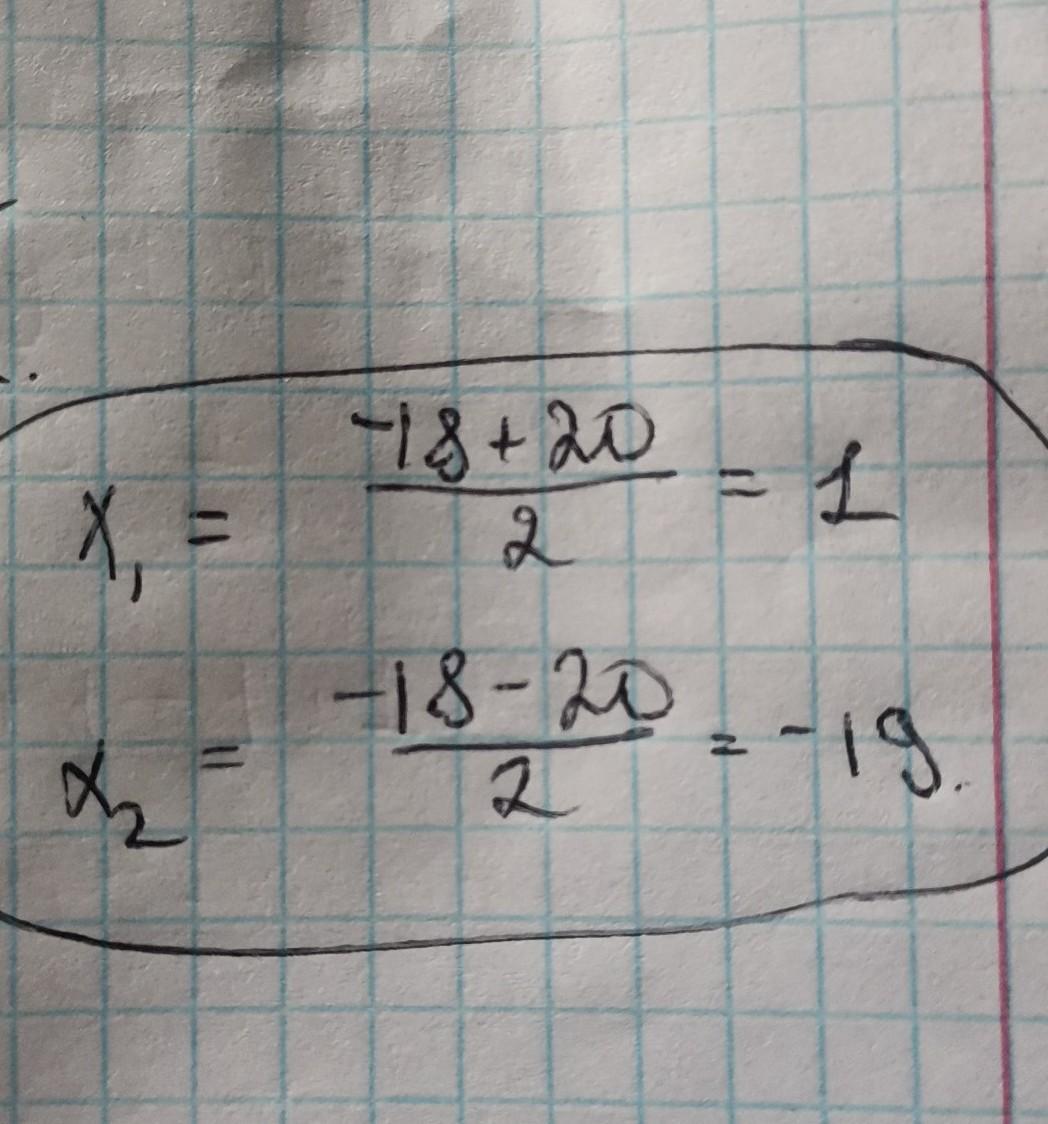 x₁ = (-18 + 20) / 2 = 1
x₂ = (-18 - 20) / 2 = -19.